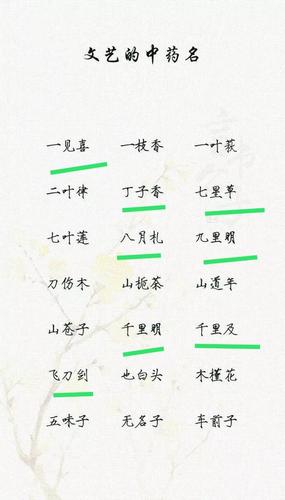 文艺的中药名
一见喜 一枝香 一叶荻
二叶律 丁子香 七星草
七叶莲 八月札 九里明
刀伤木 山栀茶 山道年
山苍子 千里明 千里及
飞刀剑 也白头 木槿花
五味子 无名子 车前子